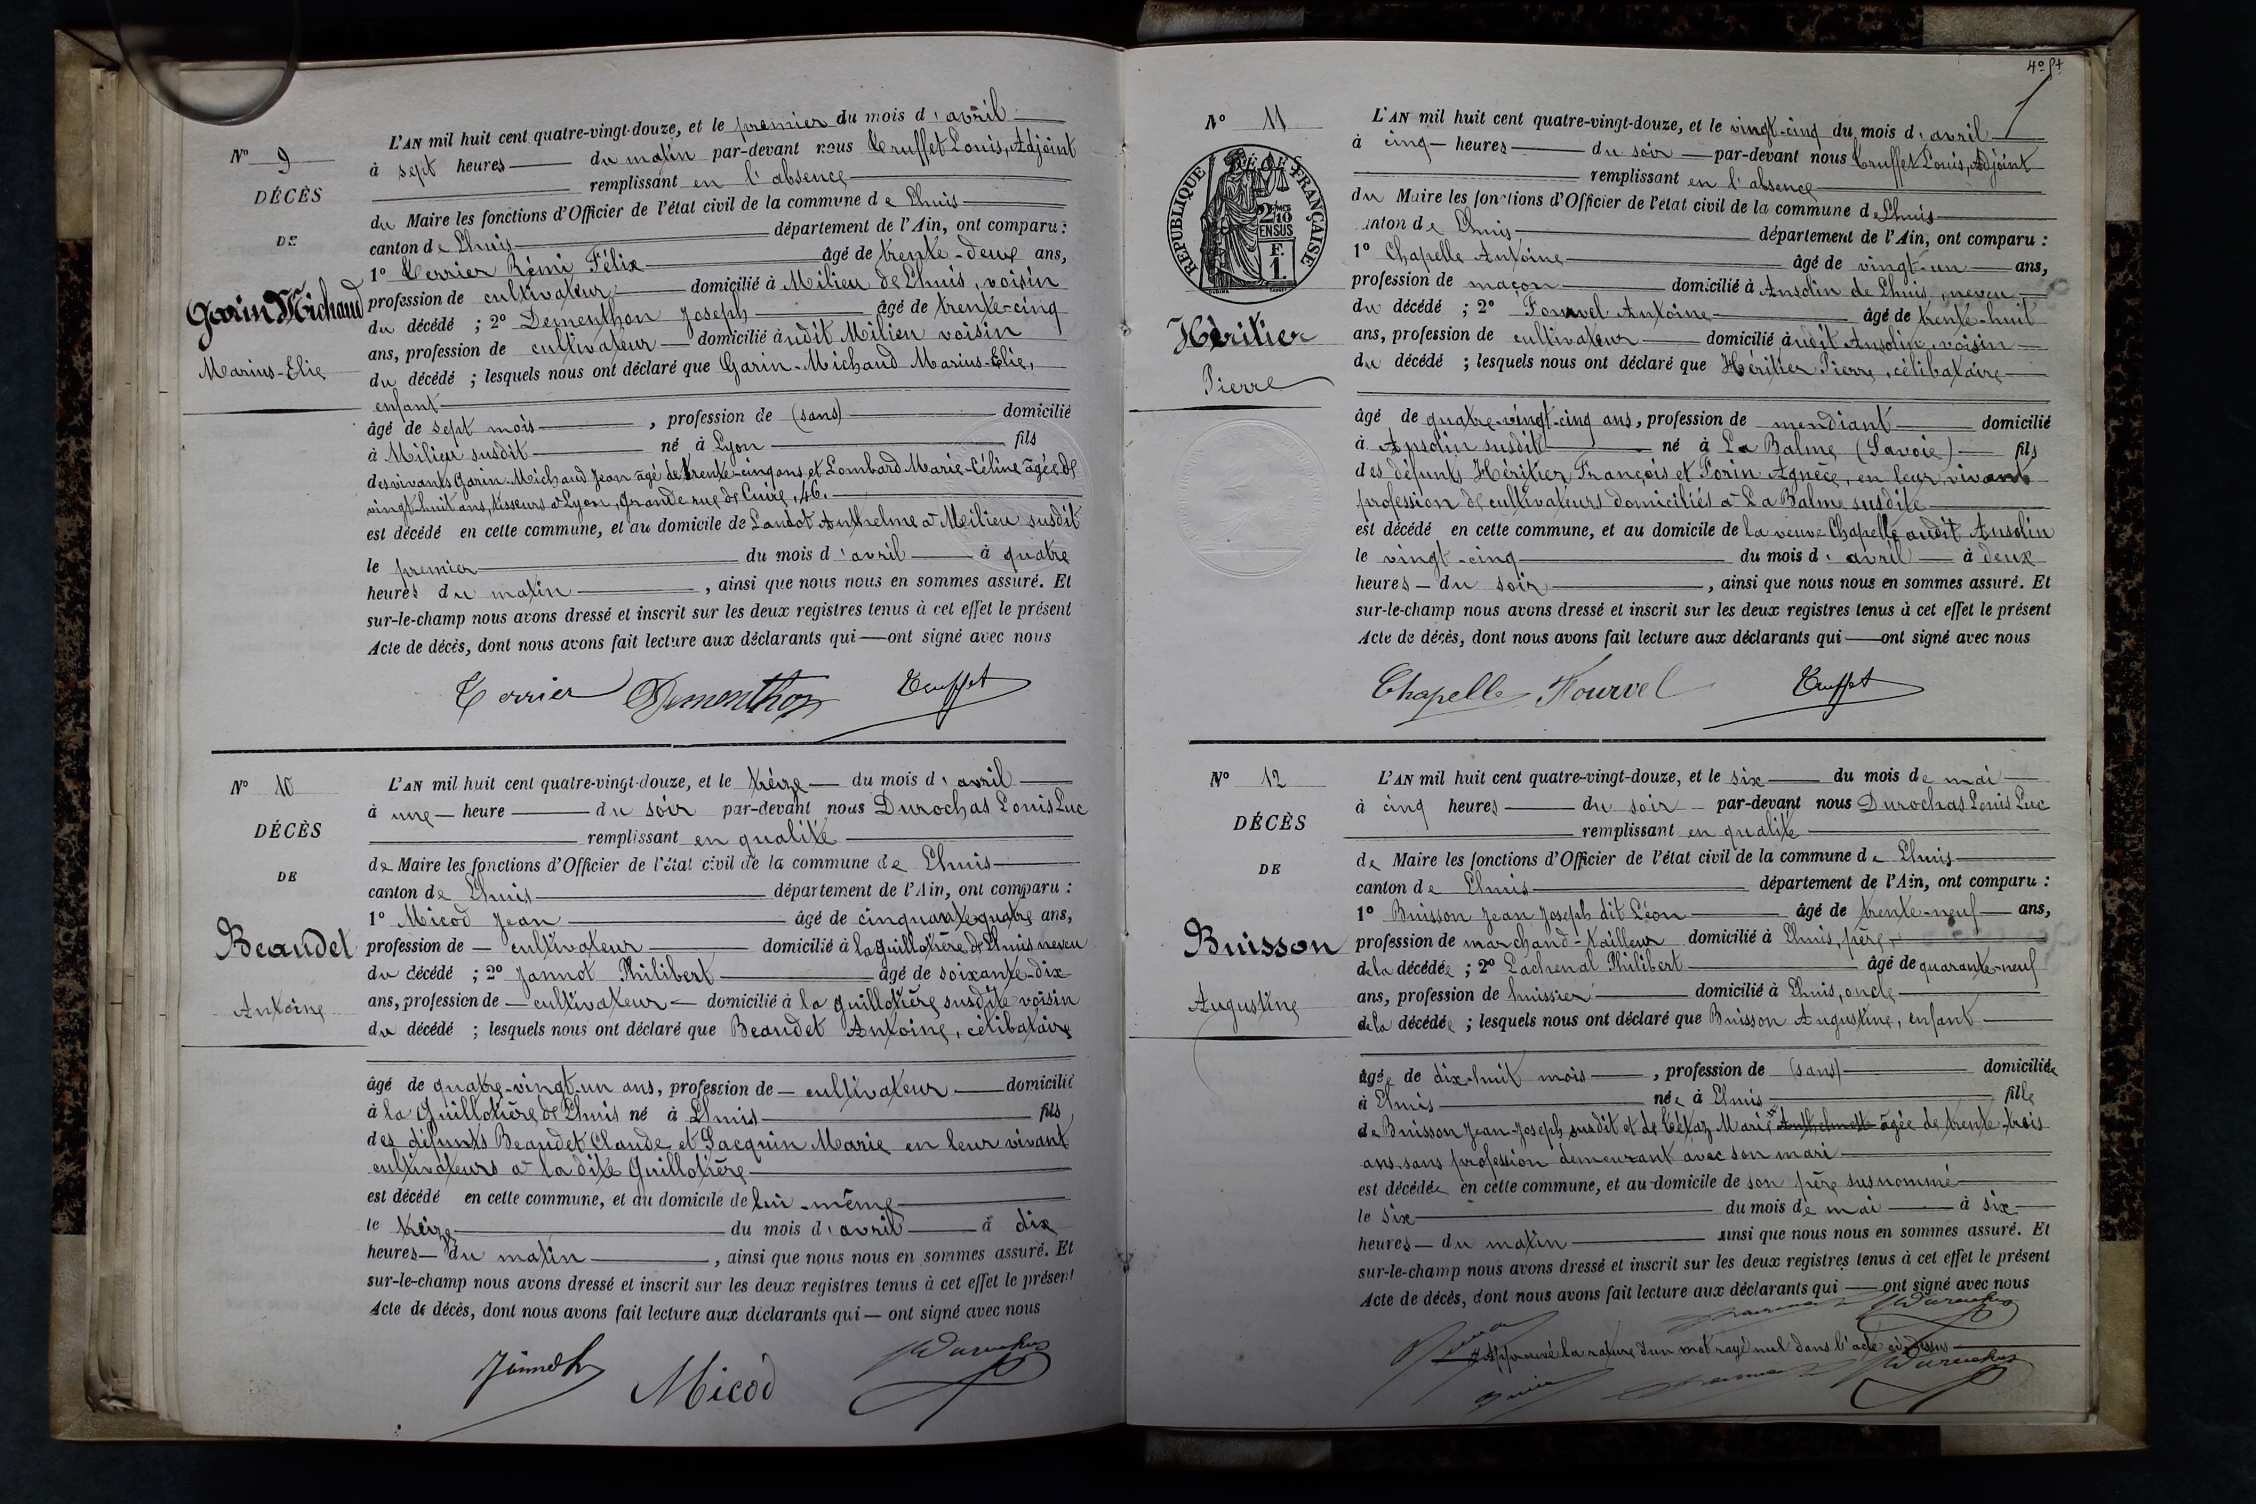 L'AN mil huit cent quatre-vingt-douze, et le premier du mois d'avril
N° 9
à sept heures du matin par-devant nous Truffet Louis, Adjoint
remplissant en l'absence
DÉCÈS
du Maire les fonctions d'Officier de l'état civil de la commune de Lhuis
DE
canton de Lhuis département de l'Ain, ont comparu :
1° Terrier Rémi Félix âgé de trente-deux ans,
Garin Michaud
profession de cultivateur domicilié à Milieu de Lhuis, voisin
du décédé ; 2° Dementhon Joseph âgé de trente-cinq
Marius-Elie
ans, profession de cultivateur domicilié audit Milieu voisin
du décédé ; lesquels nous ont déclaré que Garin-Michaud Marius-Elie,
enfant
âgé de sept mois, profession de (sans) domicilié
à Milieu susdit né à Lyon fils
des vivants Garin-Michaud Jean âgé de trente-cinq ans et Lombard Marie-Céline âgée de
vingt-huit ans, tisseurs à Lyon, grande rue de Cuire, 46.
est décédé en cette commune, et au domicile de Anthelme à Milieu susdit
le premier du mois d'avril à quatre
heures du matin, ainsi que nous nous en sommes assuré. Et
sur-le-champ nous avons dressé et inscrit sur les deux registres tenus à cet effet le présent
Acte de décès, dont nous avons fait lecture aux déclarants qui ont signé avec nous
Terrier Dementhon Truffet
N° 10
L'AN mil huit cent quatre-vingt-douze, et le treize du mois d'avril
à une heure du soir par-devant nous Durochas Louis Luc
DÉCÈS
remplissant en qualité
de Maire les fonctions d'Officier de l'état civil de la commune de Lhuis
DE
canton de Lhuis département de l'Ain, ont comparu :
1° Micod Jean âgé de cinquante-quatre ans,
Beaudet
profession de cultivateur domicilié à la Guillotière de Lhuis neveu
du décédé ; 2° Jannot Philibert âgé de soixante-dix
Antoine
ans, profession de cultivateur domicilié à la Guillotière susdite voisin
du décédé ; lesquels nous ont déclaré que Beaudet Antoine, célibataire
âgé de quatre-vingt-un ans, profession de cultivateur domicilié
à la Guillotière de Lhuis né à Lhuis fils
des défunts Beaudet Claude et Jacquin Marie en leur vivant
cultivateurs à la dite Guillotière
est décédé en cette commune, et au domicile de lui-même
le treize du mois d'avril à dix
heures du matin, ainsi que nous nous en sommes assuré. Et
sur-le-champ nous avons dressé et inscrit sur les deux registres tenus à cet effet le présent
Acte de décès, dont nous avons fait lecture aux déclarants qui ont signé avec nous
Jannot Micod Durochas
N° 11
L'AN mil huit cent quatre-vingt-douze, et le vingt-cinq du mois d'avril
à cinq heures du soir par-devant nous Truffet Louis, Adjoint
remplissant en l'absence
RÉPUBLIQUE FRANÇAISE
2/10 EN SUS
F. 1.
du Maire les fonctions d'Officier de l'état civil de la commune de Lhuis
canton de Lhuis département de l'Ain, ont comparu :
1° Chapelle Antoine âgé de vingt-un ans,
profession de maçon domicilié à Ansolin de Lhuis, neveu
du décédé ; 2° Fourvel Antoine âgé de trente-huit
Héritier
ans, profession de cultivateur domicilié audit Ansolin, voisin
du décédé ; lesquels nous ont déclaré que Héritier Pierre, célibataire
Pierre
âgé de quatre-vingt-cinq ans, profession de mendiant domicilié
à Ansolin susdit né à La Balme (Savoie) fils
des défunts Héritier François et Forin Agnèce, en leur vivant
profession de cultivateurs domiciliés à La Balme susdite
est décédé en cette commune, et au domicile de la veuve Chapelle audit Ansolin
le vingt-cinq du mois d'avril à deux
heures du soir, ainsi que nous nous en sommes assuré. Et
sur-le-champ nous avons dressé et inscrit sur les deux registres tenus à cet effet le présent
Acte de décès, dont nous avons fait lecture aux déclarants qui ont signé avec nous
Chapelle Fourvel Truffet
N° 12
L'AN mil huit cent quatre-vingt-douze, et le six du mois de mai
à cinq heures du soir par-devant nous Durochas Louis Luc
DÉCÈS
remplissant en qualité
de Maire les fonctions d'Officier de l'état civil de la commune de Lhuis
DE
canton de Lhuis département de l'Ain, ont comparu :
1° Buisson Jean Joseph dit Léon âgé de trente-neuf ans,
Buisson
profession de marchand-tailleur domicilié à Lhuis, père
de la décédée ; 2° Lachenal Philibert âgé de quarante-neuf
Augustine
ans, profession de huissier domicilié à Lhuis, oncle
de la décédée ; lesquels nous ont déclaré que Buisson Augustine, enfant
âgée de dix-huit mois, profession de (sans) domiciliée
à Lhuis née à Lhuis fille
de Buisson Jean-Joseph susdit et de Tétaz Marie Anthelmette âgée de trente-trois
ans sans profession demeurant avec son mari
est décédée en cette commune, et au domicile de son père susnommé
le six du mois de mai à six
heures du matin ainsi que nous nous en sommes assuré. Et
sur-le-champ nous avons dressé et inscrit sur les deux registres tenus à cet effet le présent
Acte de décès, dont nous avons fait lecture aux déclarants qui ont signé avec nous
Durochas
Approuvé la rature d'un mot rayé nul dans l'acte ci-dessus
Durochas